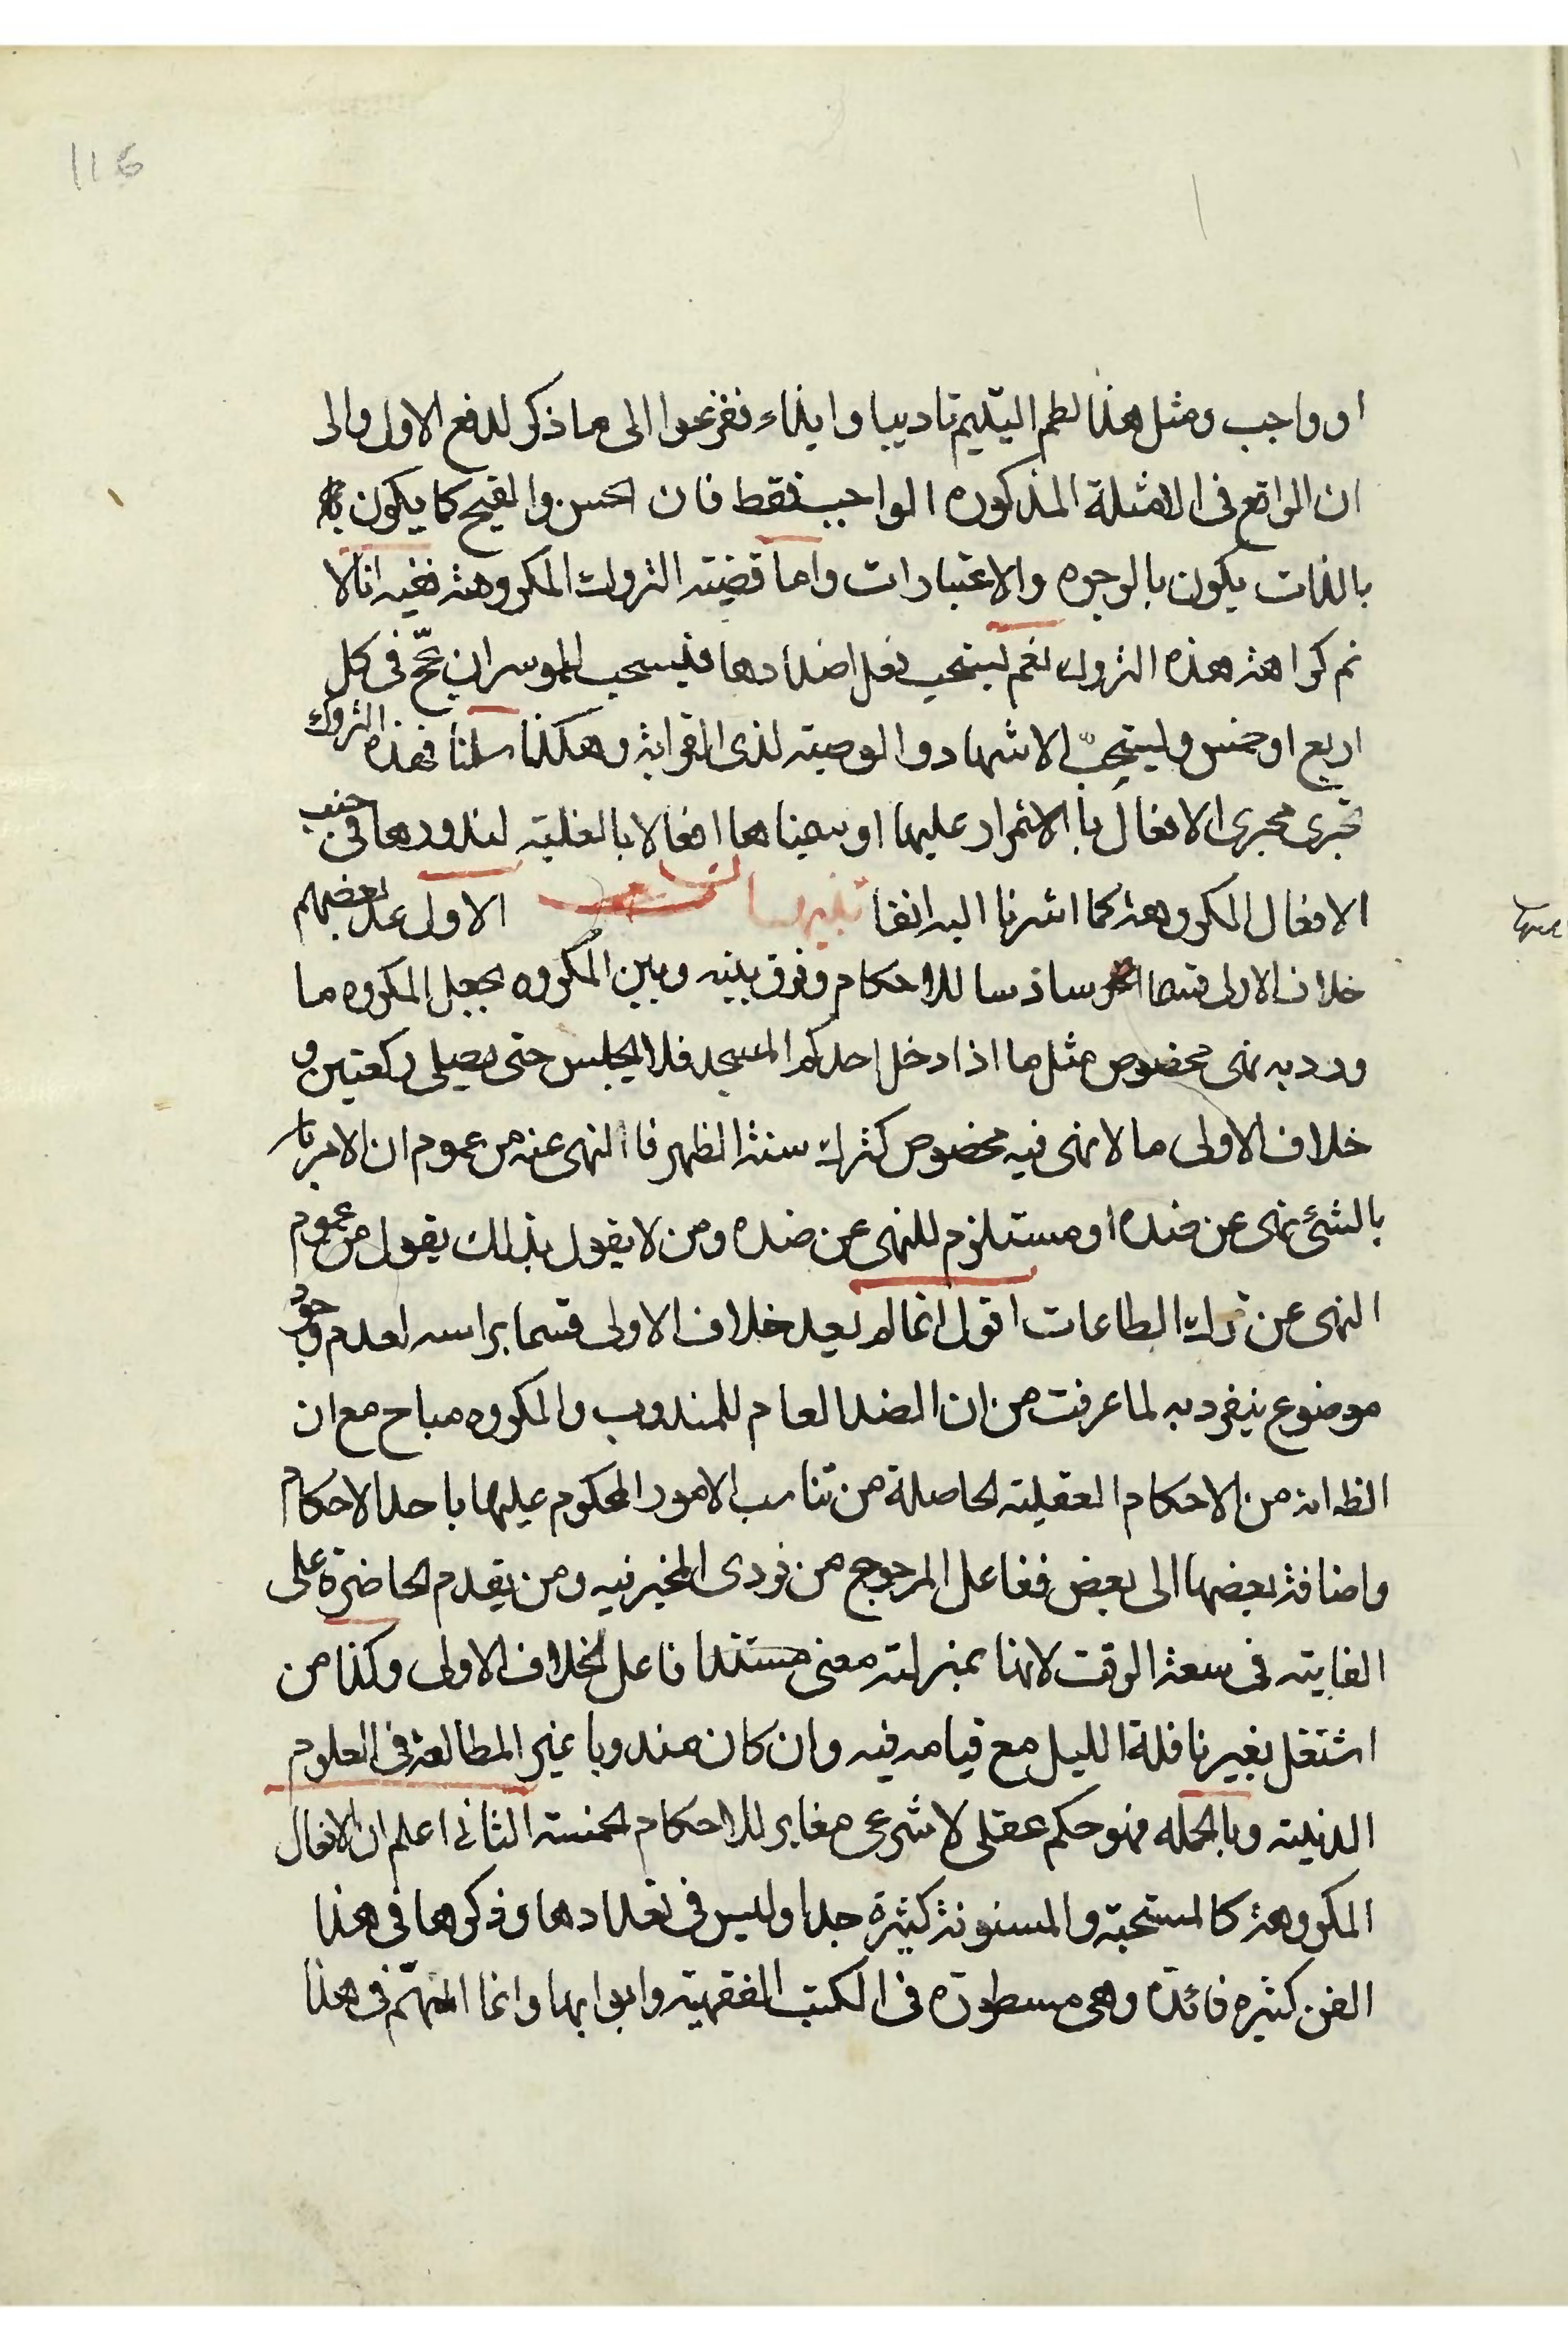 116
او واجب ومثل هذا لطم اليتيم تاديبا وايذاء ففزعوا الى ما ذكر لدفع الاول والى
ان الواقع فى الامثلة المذكوره الواجب فقط فان الحسن والقبح كما يكون
بالذات يكون بالوجوه والاعتبارات واما قضيته التروك المكروهة ففيه انا لا
نم كراهة هذه التروك نعم يستحب فعل اضدادها فيستحب للموسر ان يحج فى كل
اربع او خمس ويستحب الاشهاد والوصيته لذى القرابة وهكذا سلمنا فهذه التروك
تجرى مجرى الافعال با الاتمرار عليها او سميناها افعالا بالغلبته لندورها فى جنب
الافعال المكروهة كما اشرنا اليه انفا تنبيهات الاول عد بعضهم
خلاف الاولى قسما سادسا للاحكام وفرق بينه وبين المكروه بجعل المكروه ما
ورد به نهى مخصوص مثل ما اذا دخل احدكم المسجد فلا يجلس حتى يصلى ركعتين و
خلاف الاولى ما لا نهى فيه مخصوص كترك سنة الظهر فا النهى عنه من عموم ان الامر با
بالشئ نهى عن ضده او مستلزم للنهى عن ضده ومن لا يقول بذلك يقول من عموم
النهى عن ترك الطاعات اقول انما لم يعد خلاف الاولى قسما براسه لعدم وجود
موضوع ينفرد به لما عرفت من ان الضد العام للمندوب والمكروه مباح مع ان
الظ انه من الاحكام العقليته الحاصلة من تناسب الامور المحكوم عليها باحد الاحكام
واضافة بعضها الى بعض ففاعل المرجوح من فردى المخير فيه ومن يقدم الحاضرة على
الفايته فى سعة الوقت لانها بمنزلته معنى مستندا فاعل لخلاف الاولى وكذا من
اشتغل بغير نافلة الليل مع قيامه فيه وان كان مندوبا غير المطالعة فى العلوم
الدينيته وبالجمله فهو حكم عقلى لا شرعى مغاير للاحكام الخمسته الثانى اعلم ان الافعال
المكروهة كالمستحبة والمسنونة كثيرة جدا وليس فى تعدادها وذكرها فى هذا
الفن كثيره فائدة وهى مسطورة فى الكتب الفقهيته وابوابها وانما المهم فى هذا